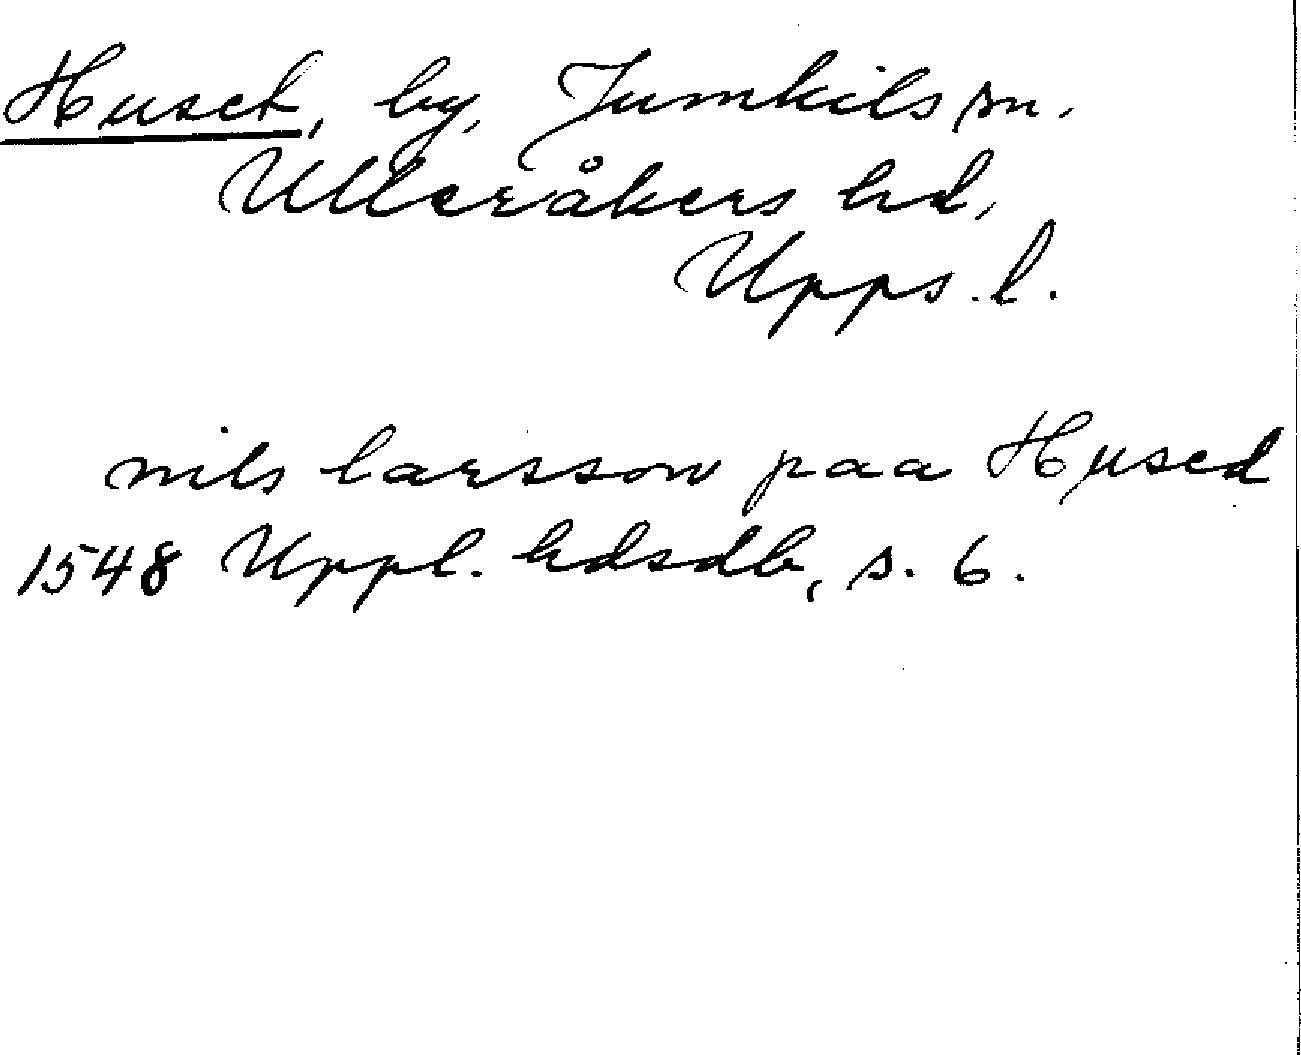 Huset, by, Jumkils sn.
Ulleråkers hd,
Upps. l.
nils larsson paa Hused
1548 Uppl. hdsdb, s. 6.